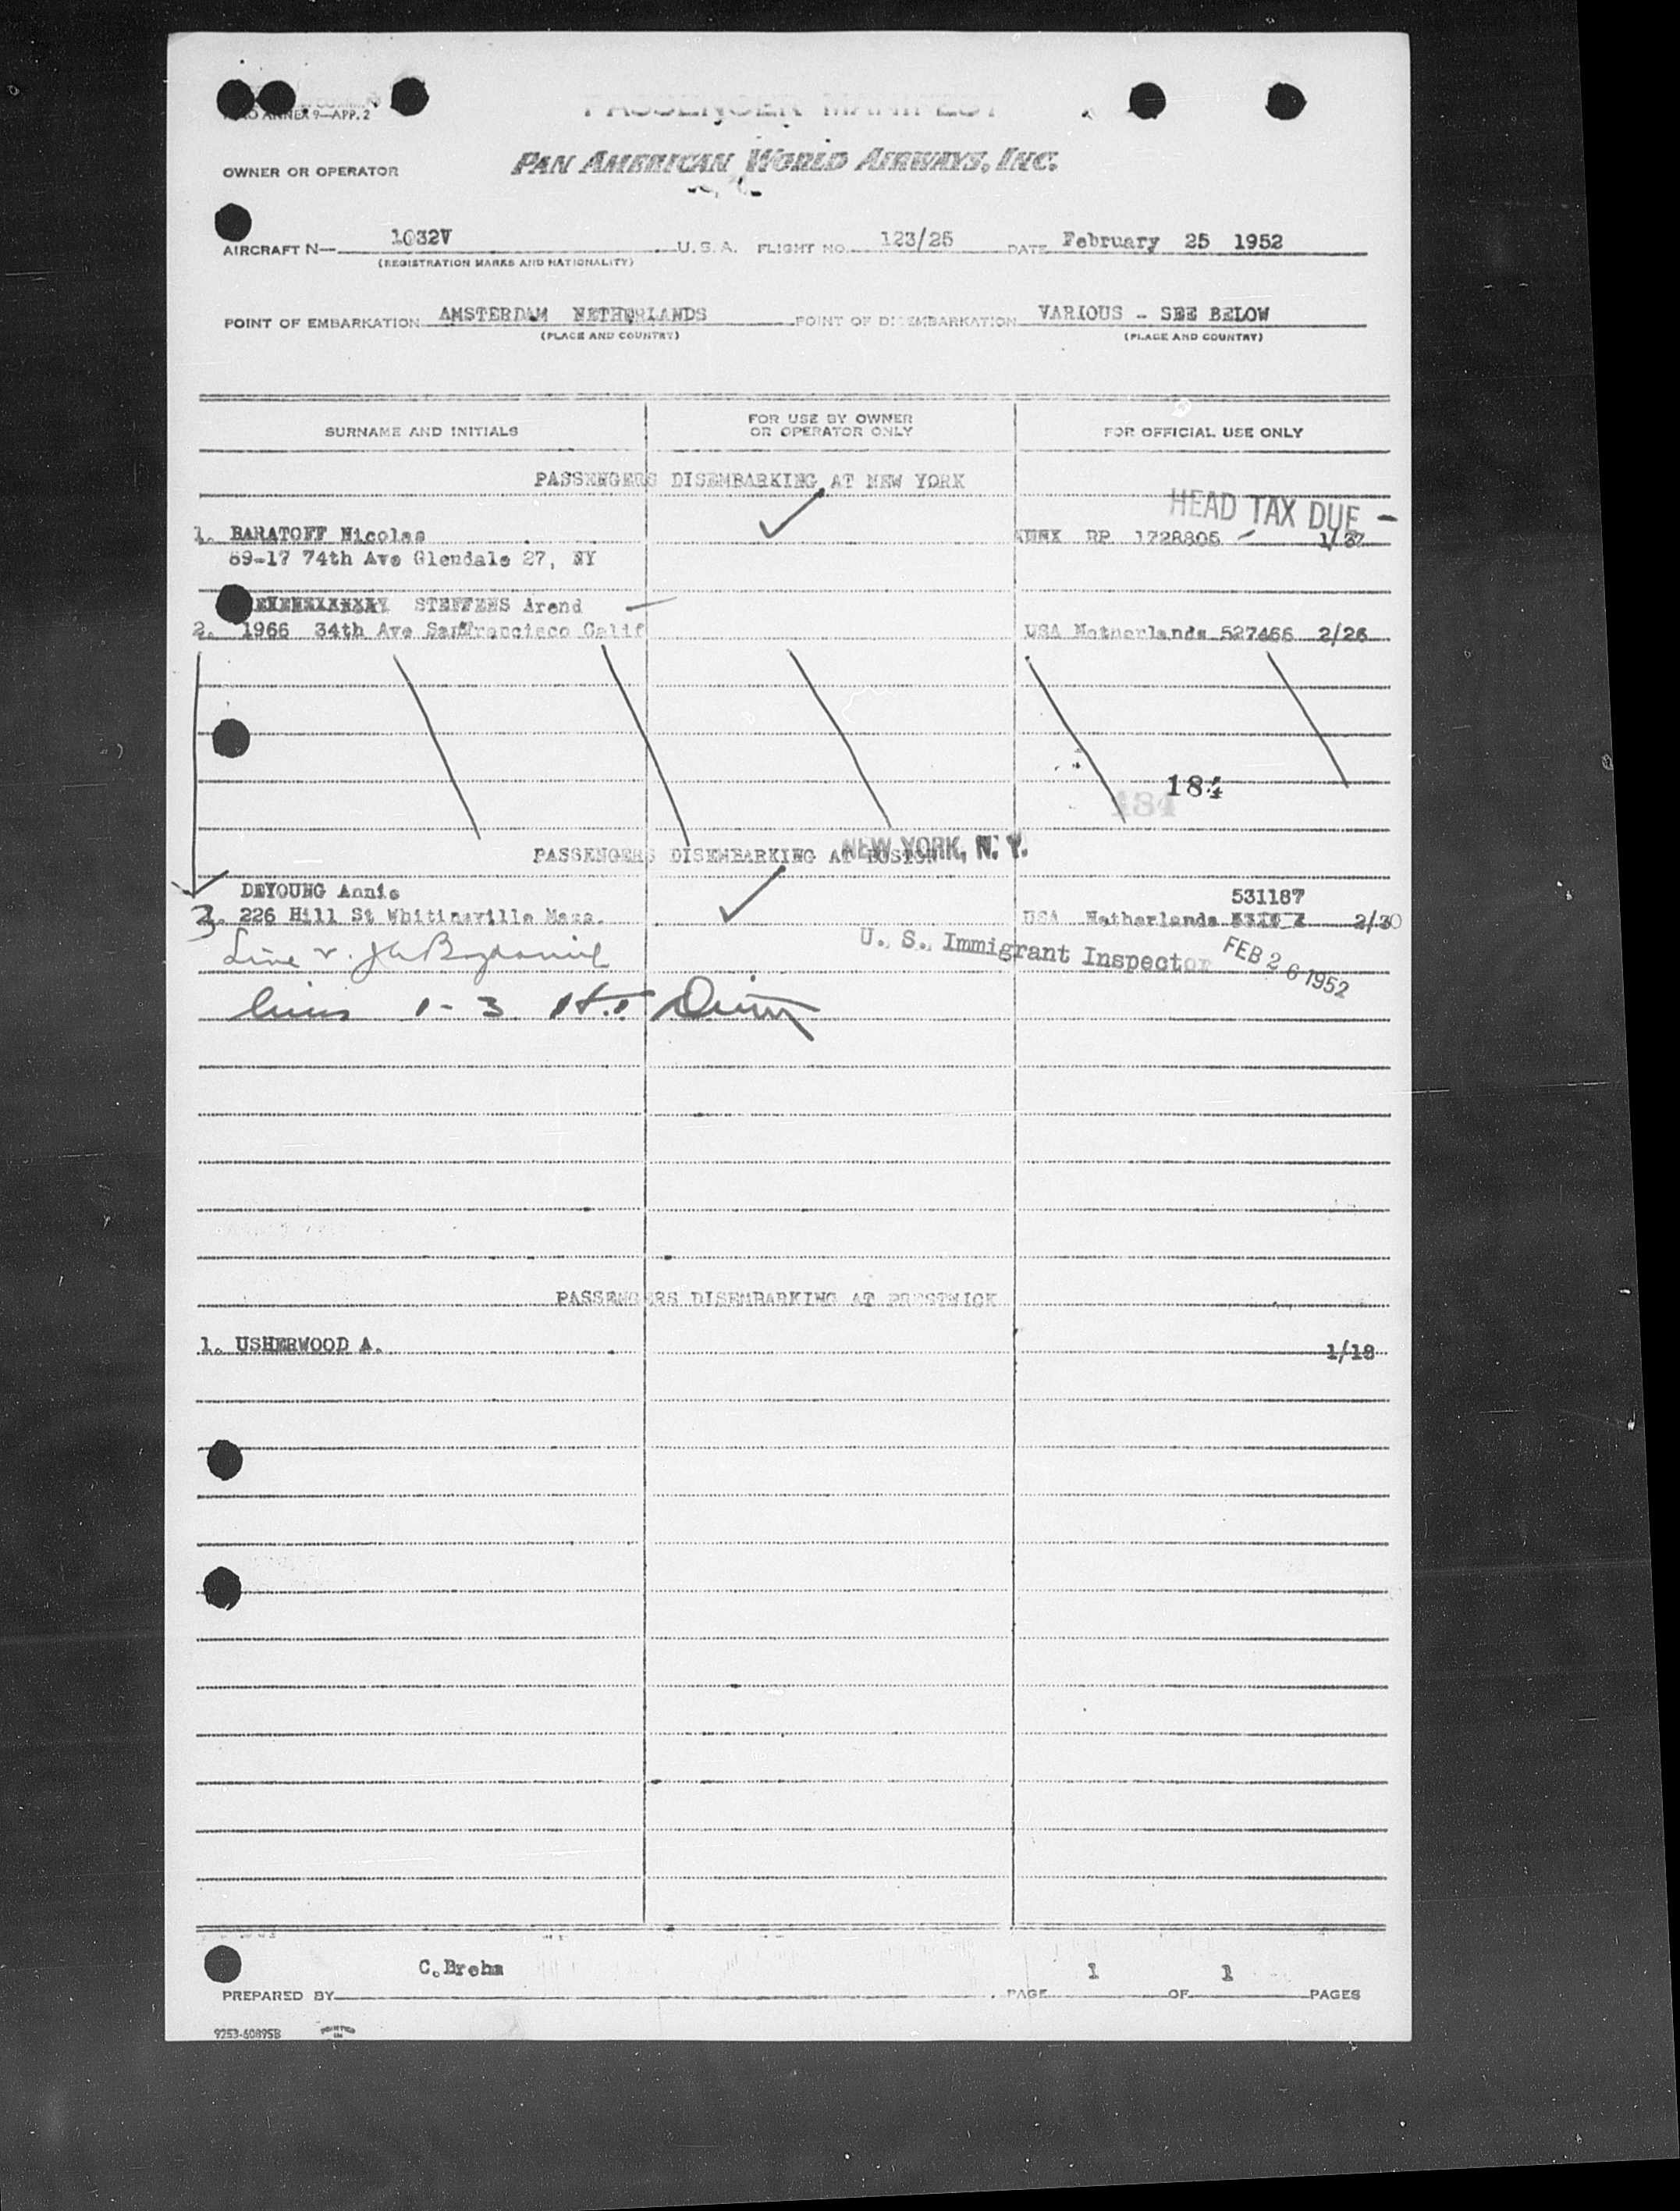 PASSENGER MANIFEST
ANNEX 9—APP. 2
OWNER OR OPERATOR PAN AMERICAN WORLD AIRWAYS, INC.
AIRCRAFT N— 1032V U. S. A. FLIGHT NO. 123/25 DATE February 25 1952
(REGISTRATION MARKS AND NATIONALITY)
POINT OF EMBARKATION AMSTERDAM NETHERLANDS POINT OF DISEMBARKATION VARIOUS - SEE BELOW
(PLACE AND COUNTRY) (PLACE AND COUNTRY)
SURNAME AND INITIALS FOR USE BY OWNER OR OPERATOR ONLY FOR OFFICIAL USE ONLY
PASSENGERS DISEMBARKING AT NEW YORK
HEAD TAX DUE -
1. BARATOFF Nicolas RP 1728805 1/37
69-17 74th Ave Glendale 27, NY
STEFFENS Arend
2. 1966 34th Ave SanFrancisco Calif USA Netherlands 527466 2/26
184
184
NEW YORK, N. Y.
PASSENGERS DISEMBARKING AT BOSTON
DEYOUNG Annie 531187
3. 226 Hill St Whitinsville Mass. USA Netherlands 2/30
U. S. Immigrant Inspector FEB 26 1952
Line
lines 1-3
PASSENGERS DISEMBARKING AT PRESTWICK
1. USHERWOOD A. 1/18
C.Brehm
PREPARED BY PAGE 1 OF 1 PAGES
9253-60895B PRINTED IN